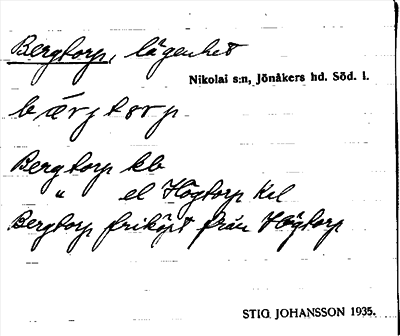 Bergtorp, lägenhet
Nikolai s:n, Jönåkers hd. Söd. l.
bærjtorp
Bergtorp kb
" el Högtorp Kul
Bergtorp friköpt från Högtorp
STIG JOHANSSON 1935.